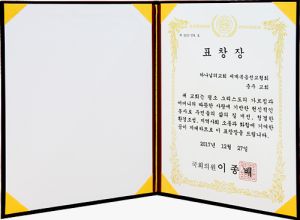 표 창 장
하나님의교회 세계복음선교협회
충주 교회
귀 교회는 평소 그리스도의 가르침과
어머니의 따뜻한 사랑에 기반한 헌신적인
봉사로 주민들의 삶의 질 개선, 청결한
환경조성, 지역사회 소통과 화합에 기여한
공이 지대하므로 이 표창장을 드립니다.
2017년 12월 27일
국회의원 이종배